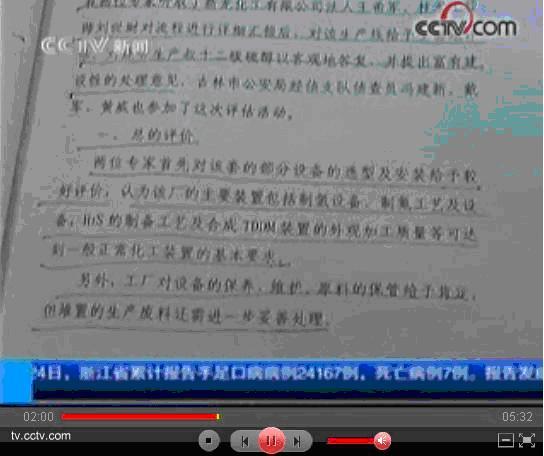 CCTV.com
CCTV 新闻
设性的处理意见，吉林市公安局经侦支队侦查员冯建新、戴
军、黄威也参加了这次评估活动。
一、总的评价
两位专家首先对该套的部分设备的选型及安装给于较
好评价，认为该厂的主要装置包括制氢设备、制氮工艺及设
备，H₂S的制备工艺及合成TDDM装置的外观加工质量等可达
到一般正常化工装置的基本要求。
另外，工厂对设备的保养、维护、原料的保管给于肯定，
但堆置的生产废料还需进一步妥善处理。
24日，浙江省累计报告手足口病病例24167例，死亡病例7例。报告发
02:00
05:32
tv.cctv.com